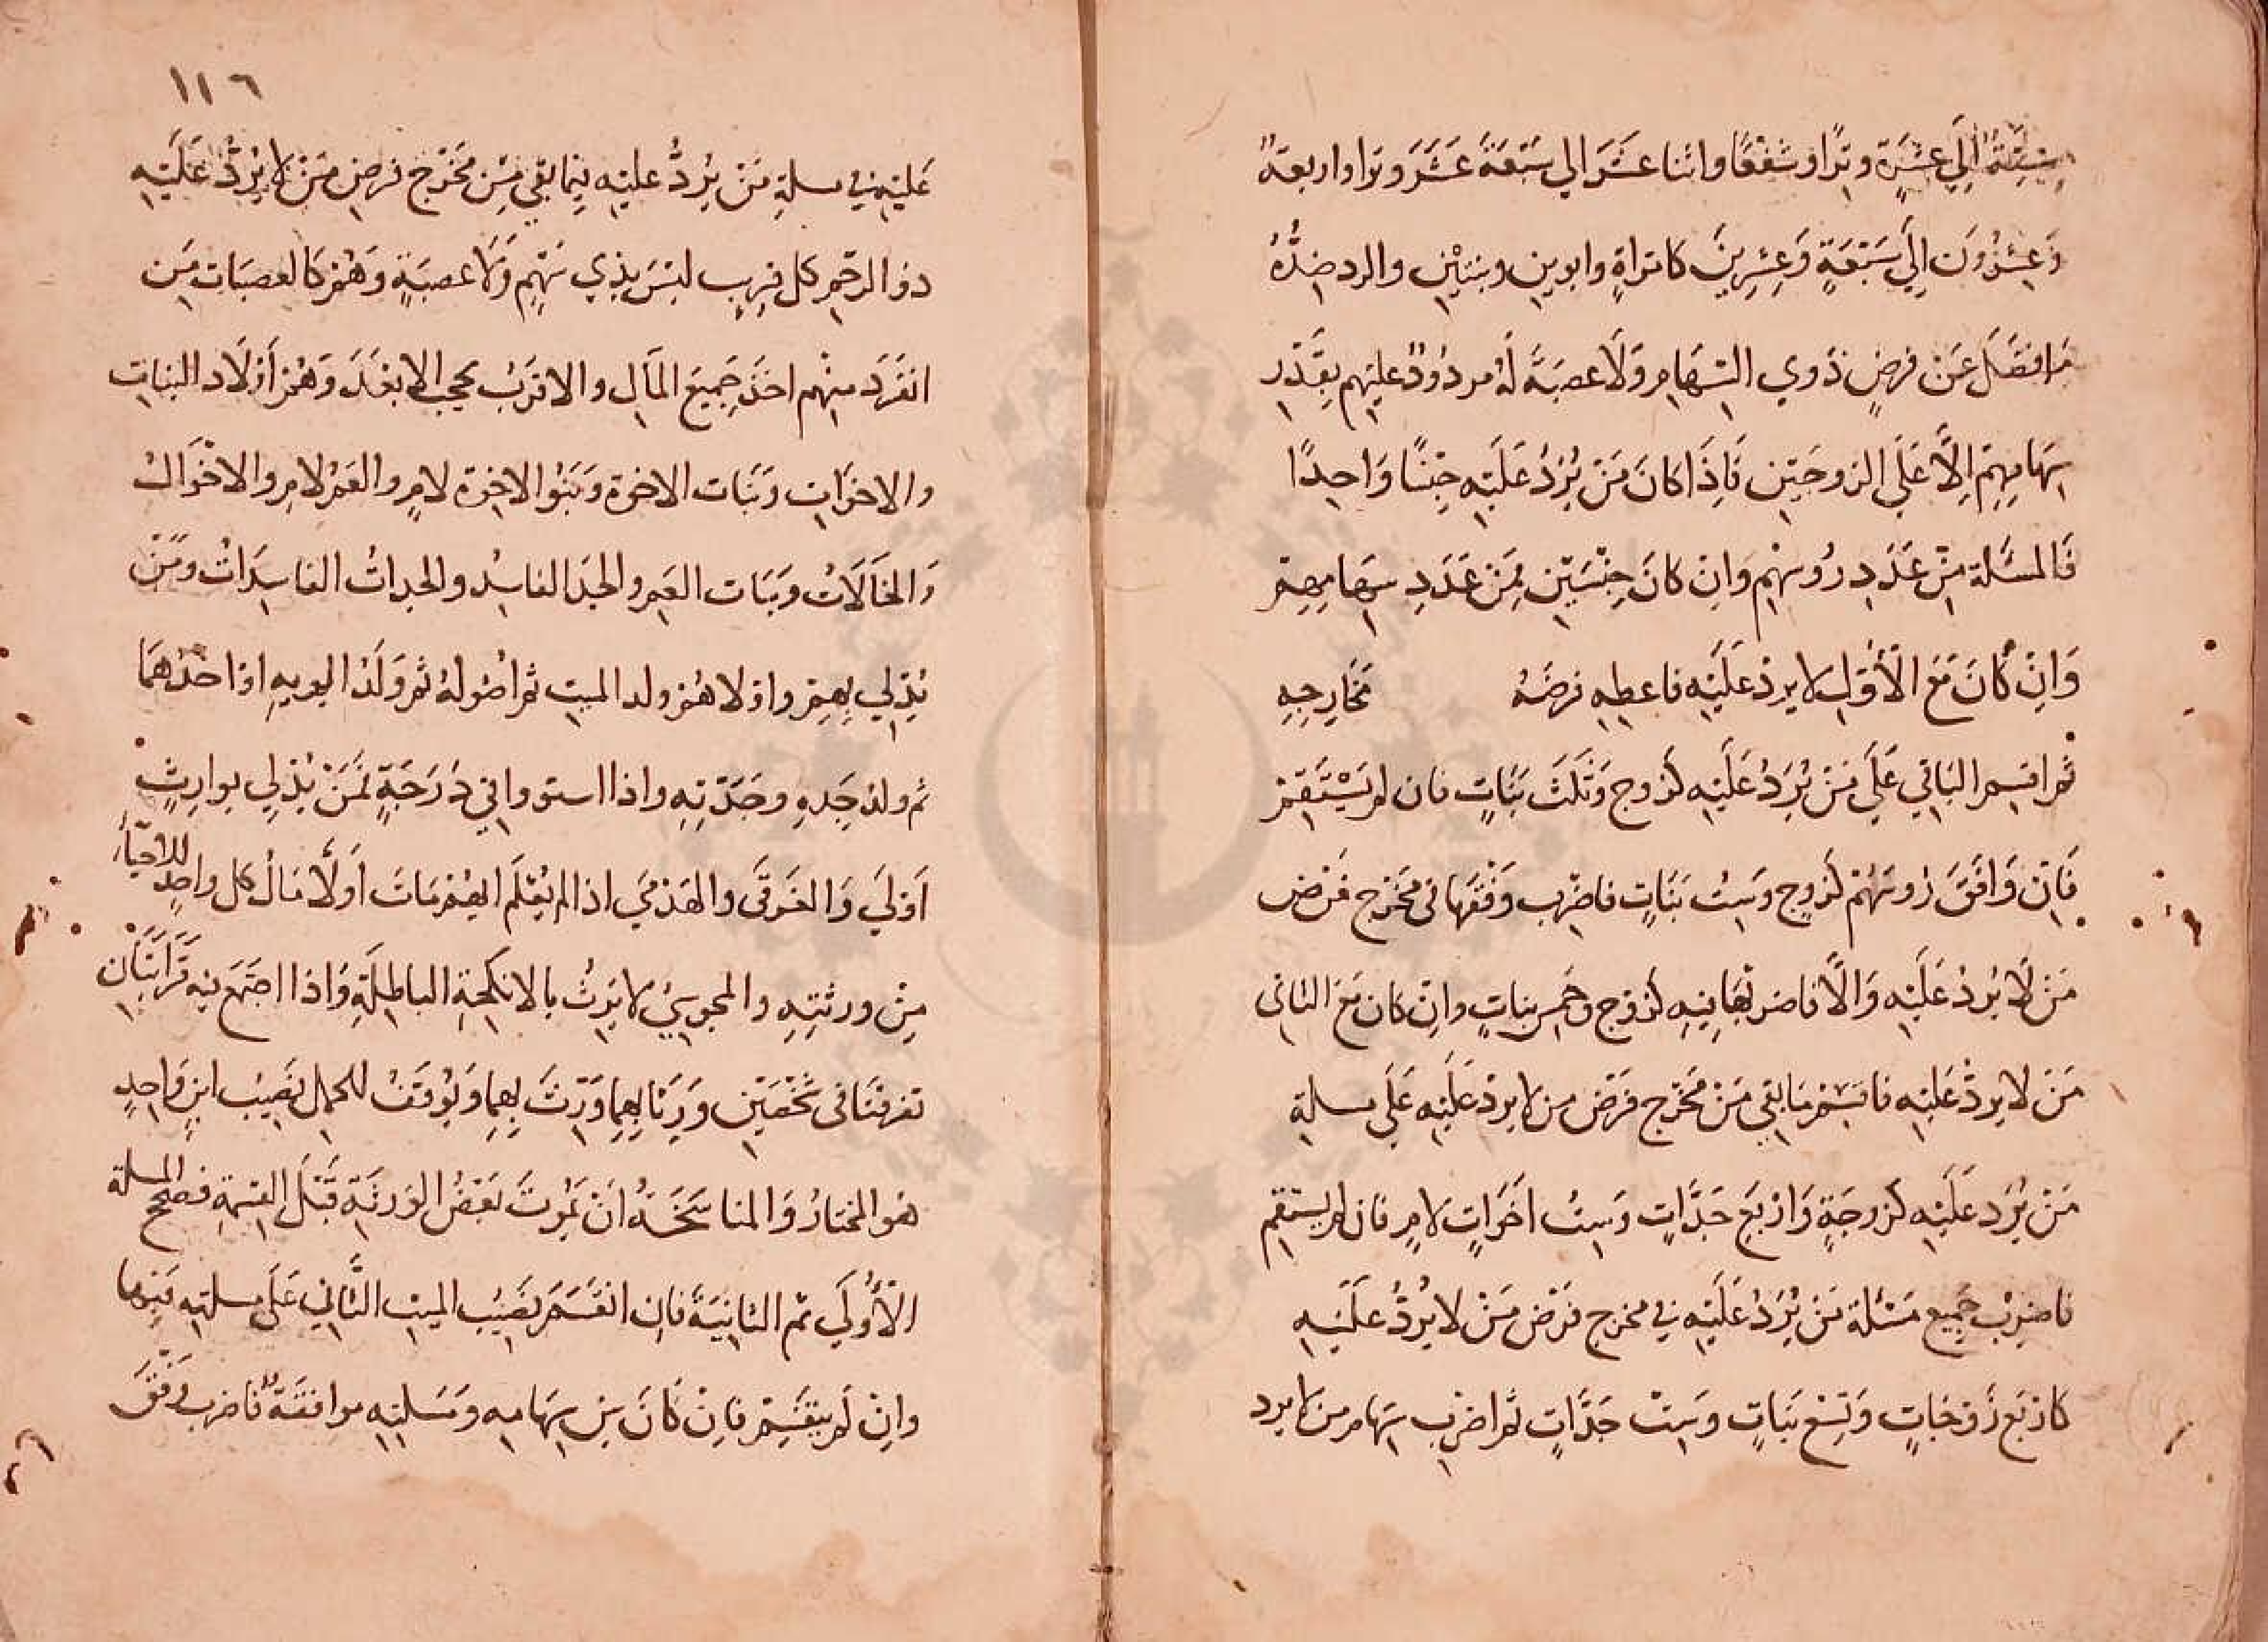 ستة الى عشرة وترا وشفعا واثنا عشر الى سبعة عشر وترا واربعة
وعشرون الى سبعة وعشرين كامراة وابوين وبنتين والرد ضده
ما فضل عن فرض ذوي السهام ولا عصبة له مردود عليهم بقدر
سهامهم الا على الزوجين فاذا كان من يرد عليه جنسا واحدا
فالمسئلة من عدد روسهم وان كان جنسين فمن عدد سهامهم
وان كان مع الاول من لا يرد عليه فاعطه فرضه مخارجه
ثم اقسم الباقي على من يرد عليه كزوج وثلث بنات فان لم يستقم
فان وافق روسهم كزوج وست بنات فاضرب وفقها في مخرج فرض
من لا يرد عليه والا فاضربها فيه كزوج وخمس بنات وان كان مع الثاني
من لا يرد عليه فاقسم ما بقي من مخرج فرض من لا يرد عليه على مسلة
من يرد عليه كزوجة واربع جدات وست اخوات لام فان لم يستقم
فاضرب جميع مسئلة من يرد عليه في مخرج فرض من لا يرد عليه
كاربع زوجات وتسع بنات وست جدات ثم اضرب سهام من لا يرد
١١٦
عليه في مسلة من يرد عليه فيما بقي من مخرج فرض من لا يرد عليه
ذو الرحم كل قريب ليس بذي سهم ولا عصبة وهو كالعصبات من
انفرد منهم اخذ جميع المال والاقرب يحجب الابعد وهم اولاد البنات
والاخوات وبنات الاخوة وبنو الاخوة لام والعم لام والاخوال
والخالات وبنات العم والجد الفاسد والجدات الفاسدات ومن
يدلي بهم واولاهم ولد الميت ثم اصوله ثم ولد ابويه او احدهما
ثم ولد جده وجدته واذا استووا في درجة فمن يدلي بوارث
اولى والغرقى والهدمى اذا لم يعلم ايهم مات اولا مال كل واحد للاحياء
من ورثته والمجوسي لا يرث بالانكحة الباطلة واذا اجتمع فيه قرابتان
تفرقتا في شخصين ورثا بهما ورث بهما ويوقف للحمل نصيب ابن واحد
هو المختار والمناسخة ان يموت بعض الورثة قبل القسمة فصحح المسلة
الاولى ثم الثانية فان انقسم نصيب الميت الثاني على مسلته فبها
وان لم ينقسم فان كان بين سهامه ومسلته موافقة فاضرب وفق